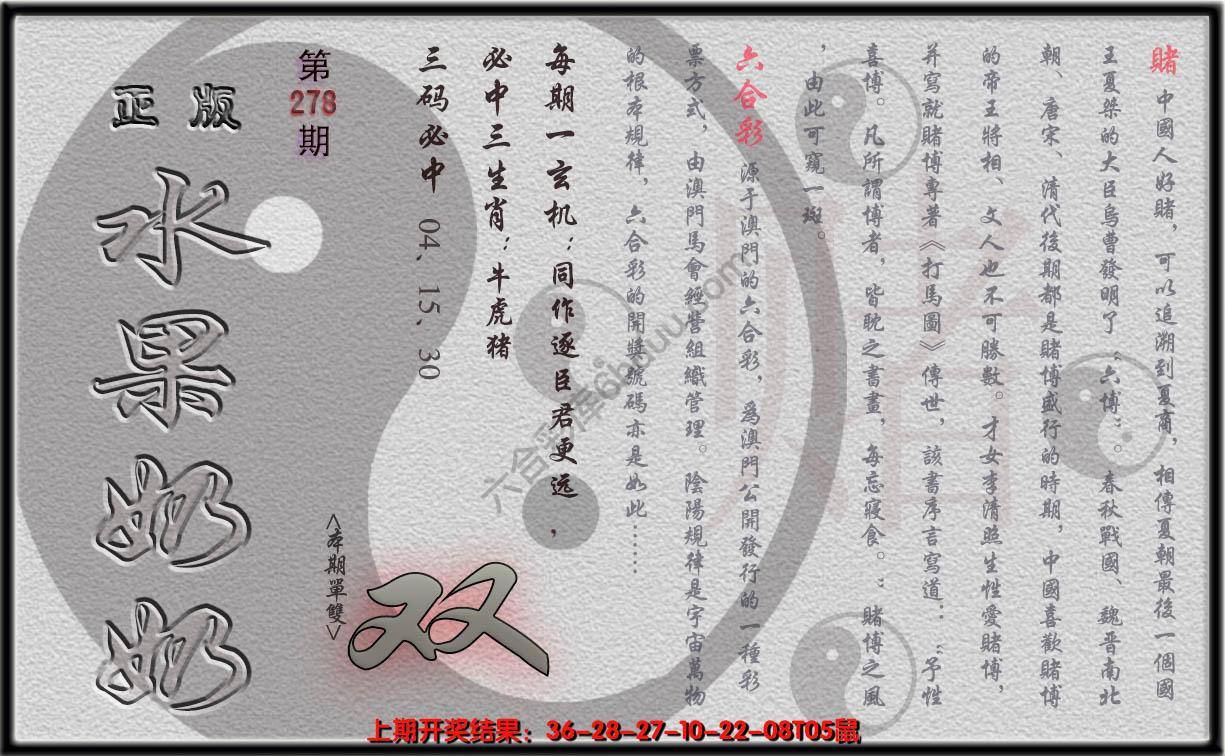 賭 中國人好賭，可以追溯到夏商，相傳夏朝最後一個國
王夏桀的大臣烏曹發明了“六博”。春秋戰國、魏晋南北
朝、唐宋、清代後期都是賭博盛行的時期，中國喜歡賭博
的帝王將相、文人也不可勝數。才女李清照生性愛賭博，
并寫就賭博專著《打馬圖》傳世，該書序言寫道：“予性
喜博。凡所謂博者，皆耽之書畫，每忘寢食。”賭博之風
，由此可窺一斑。
六合彩 源于澳門的六合彩，爲澳門公開發行的一種彩
票方式，由澳門馬會經營組織管理。陰陽規律是宇宙萬物
的根本規律，六合彩的開獎號碼亦是如此……
每期一玄机：同作逐臣君更远，
必中三生肖：牛虎猪
三码必中 04、15、30
第
278
期
<本期單雙>
双
正版
水果奶奶
上期开奖结果：36-28-27-10-22-08T05鼠